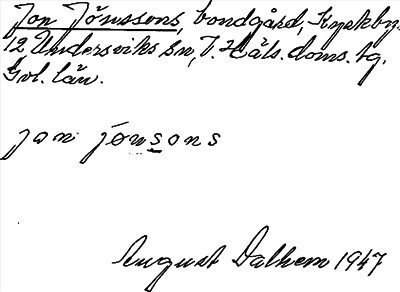 Jon Jönssons, bondgård, Kyrkby
12 Undersviks sn, V. Häls. doms. tg.
Gvl. län.
jon jönsons
August Dalhem 1947